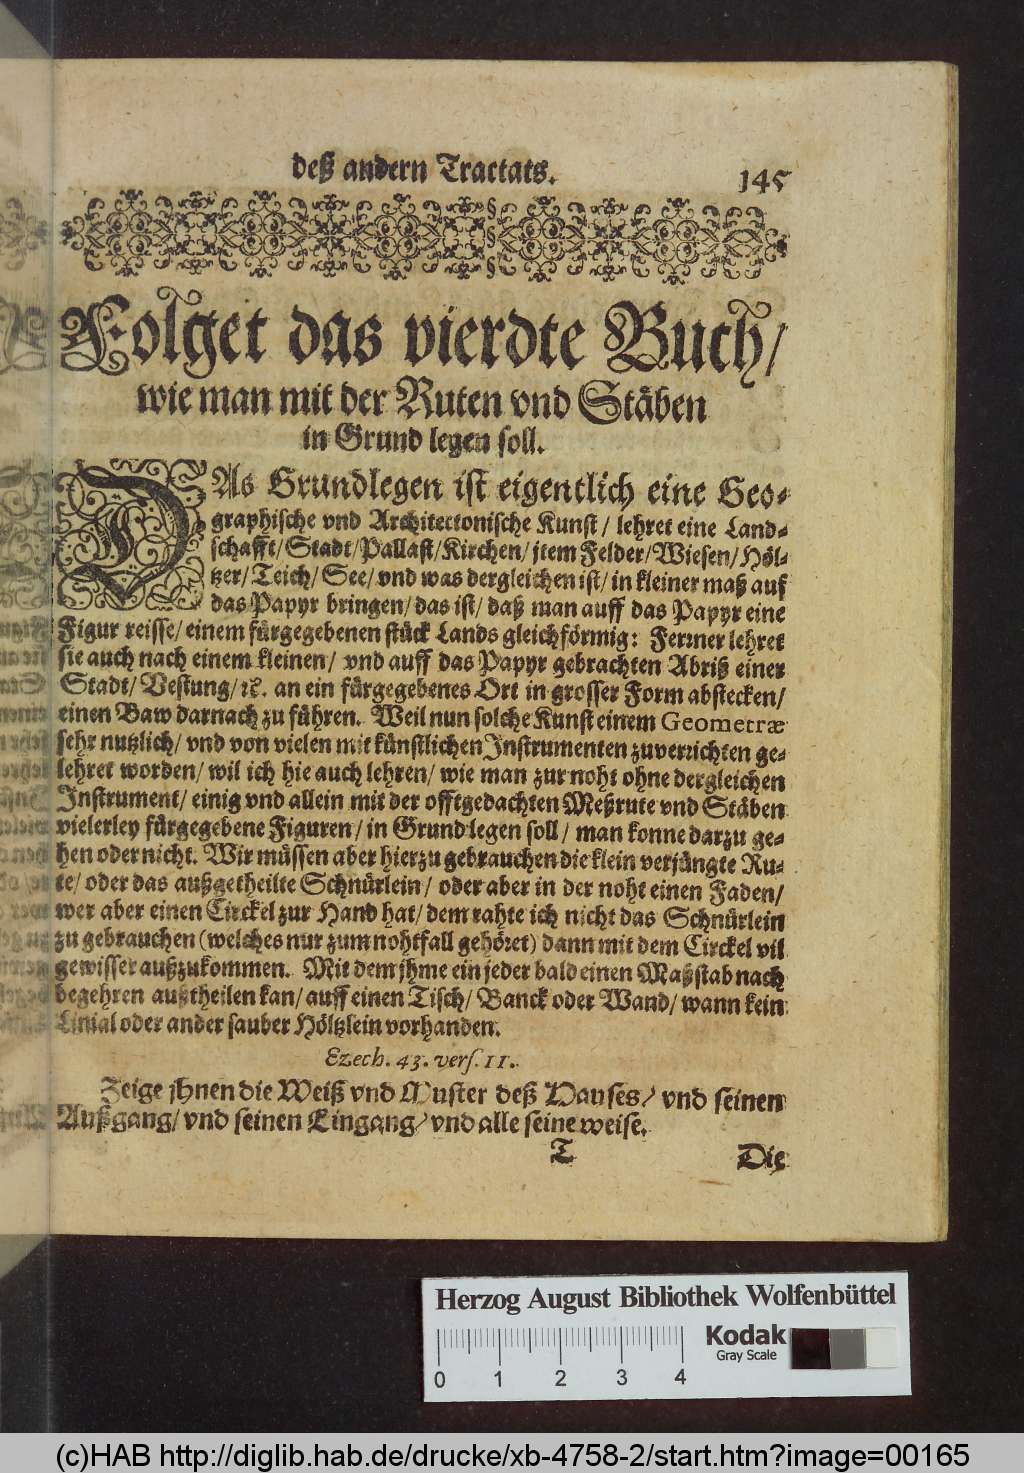 deß andern Tractats. 145
Folget das vierdte Buch/
wie man mit der Ruten vnd Stäben
in Grund legen soll.
DAs Grundlegen ist eigentlich eine Geo-
graphische vnd Architectonische Kunst/ lehret eine Land-
schafft/ Stadt/ Pallast/ Kirchen/ jtem Felder/ Wiesen/ Höl-
tzer/ Teich/ See/ vnd was dergleichen ist/ in kleiner maß auf
das Papyr bringen/ das ist/ daß man auff das Papyr eine
Figur reisse/ einem fürgegebenen stück Lands gleichförmig: Ferrner lehret
sie auch nach einem kleinen/ vnd auff das Papyr gebrachten Abriß einer
Stadt/ Vestung/ ꝛc. an ein fürgegebenes Ort in grosser Form abstecken/
einen Baw darnach zu führen. Weil nun solche Kunst einem Geometræ
sehr nutzlich/ vnd von vielen mit künstlichen Instrumenten zuverrichten ge-
lehret worden/ wil ich hie auch lehren/ wie man zur noht ohne dergleichen
Instrument/ einig vnd allein mit der offtgedachten Meßrute vnd Stäben
vielerley fürgegebene Figuren/ in Grund legen soll/ man konne darzu ge-
hen oder nicht. Wir müssen aber hierzu gebrauchen die klein verjüngte Ru-
te/ oder das außgetheilte Schnürlein/ oder aber in der noht einen Faden/
wer aber einen Circkel zur Hand hat/ dem rahte ich nicht das Schnürlein
zu gebrauchen (welches nur zum nohtfall gehöret) dann mit dem Circkel vil
gewisser außzukommen. Mit dem jhme ein jeder bald einen Maßstab nach
begehren außtheilen kan/ auff einen Tisch/ Banck oder Wand/ wann kein
Linial oder ander sauber Höltzlein vorhanden.
Ezech. 43. vers. 11.
Zeige jhnen die Weiß vnd Muster deß Hauses/ vnd seinen
Außgang/ vnd seinen Eingang/ vnd alle seine weise.
T Die
Herzog August Bibliothek Wolfenbüttel
Kodak
Gray Scale
0 1 2 3 4
(c)HAB http://diglib.hab.de/drucke/xb-4758-2/start.htm?image=00165